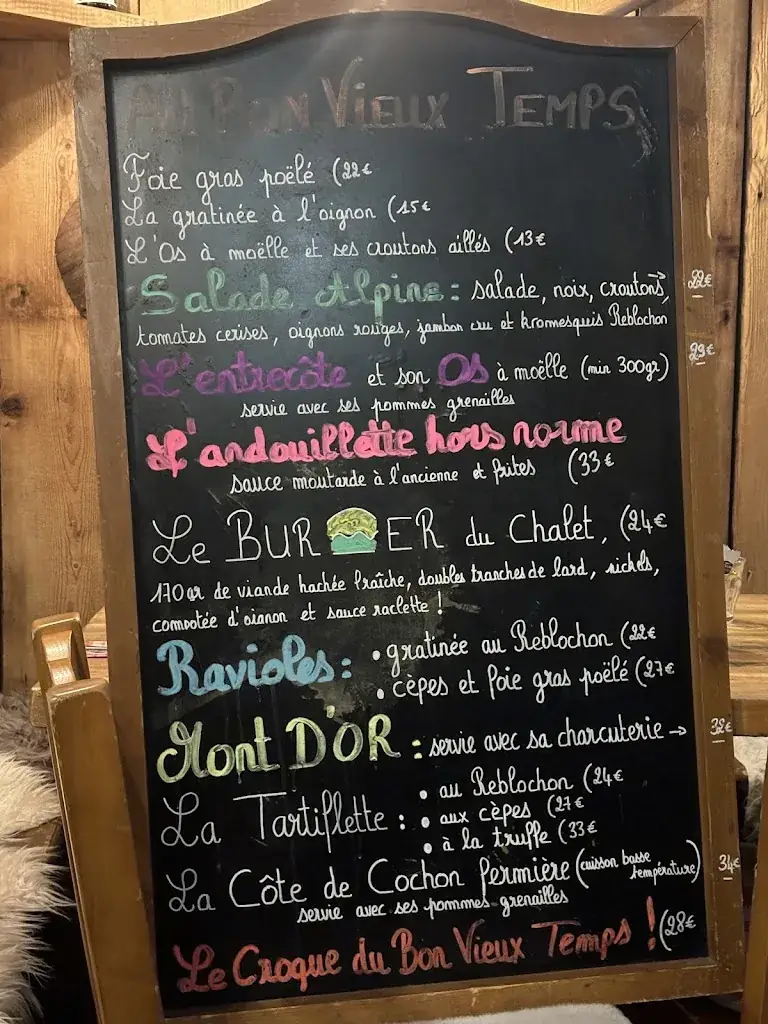 Au Bon Vieux Temps
Foie gras poëlé (22€
La gratinée à l'oignon (15€
L'Os à moëlle et ses croutons aillés (13€
Salade Alpine : salade, noix, croutons, 22€
tomates cerises, oignons rouges, jambon cru et kromesquis Reblochon
L'entrecôte et son Os à moëlle (min 300gr) 29€
servie avec ses pommes grenailles
L'andouillette hors norme
sauce moutarde à l'ancienne et frites (33€
Le BURGER du Chalet, (24€
170gr de viande hachée fraîche, doubles tranches de lard, pickels,
compotée d'oignon et sauce raclette !
Ravioles : • gratinée au Reblochon (22€
• cèpes et foie gras poëlé (27€
Mont D'OR : servie avec sa charcuterie → 32€
La Tartiflette : • au Reblochon (24€
• aux cèpes (27€
• à la truffe (33€
La Côte de Cochon fermière (cuisson basse température) 34€
servie avec ses pommes grenailles
Le Croque du Bon Vieux Temps ! (28€